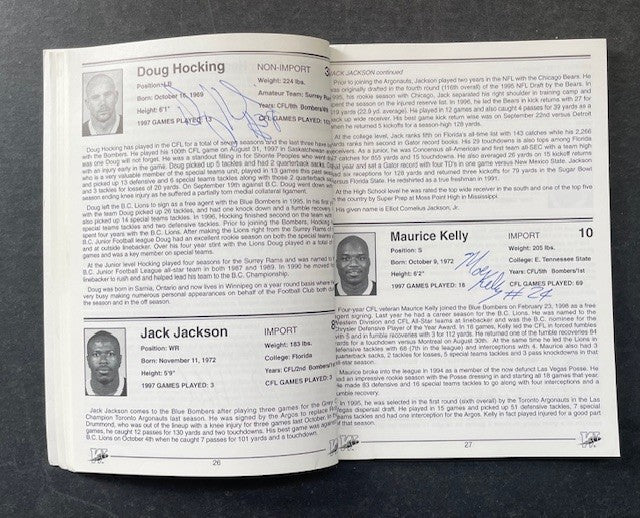 Doug Hocking
NON-IMPORT
3
Position: LB
Weight: 224 lbs.
Born: October 16, 1969
Amateur Team: Surrey
Height: 6'1"
Years: CFL/8th Bombers
1997 GAMES PLAYED: 13
CFL GAMES PLAYED:
Doug Hocking has played in the CFL for a total of seven seasons and the last three have been
with the Bombers. He played his 100th CFL game on August 31, 1997 in Saskatchewan
was one Doug will not forget. He was a standout filling in for Shonte Peoples who went down
with an injury early in the game. Doug picked up 5 tackles and had 2 quarterback sacks.
who is a very valuable member of the special teams unit, played in 13 games this past season
and picked up 13 defensive and 6 special teams tackles along with those 2 quarterback
and 3 tackles for losses of 20 yards. On September 19th against B.C. Doug went down with
season ending knee injury as he suffered a partially torn medial collateral ligament.
Doug left the B.C. Lions to sign as a free agent with the Blue Bombers in 1995. In his first
with the team Doug picked up 26 tackles, and had one knock down and a fumble recovery
also picked up 14 special teams tackles. In 1996, Hocking finished second on the team with
special teams tackles and two defensive tackles. Prior to joining the Bombers, Hocking
spent four years with the B.C. Lions. After making the Lions right from the Surrey Rams of
B.C. Junior Football league Doug had an excellent rookie season on both the special teams
and at outside linebacker. Over his four year stint with the Lions Doug played in a total of
games and was a key member on special teams.
At the Junior level Hocking played four seasons for the Surrey Rams and was named to
B.C. Junior Football League all-star team in both 1987 and 1989. In 1990 he moved to
linebacker to rush end and helped lead his team to the B.C. Championship.
Doug was born in Sarnia, Ontario and now lives in Winnipeg on a year round basis where
very busy making numerous personal appearances on behalf of the Football Club both during
the season and in the off season.
Jack Jackson
IMPORT
8
Position: WR
Weight: 183 lbs.
Born: November 11, 1972
College: Florida
Height: 5'9"
Years: CFL/2nd Bombers/1
1997 GAMES PLAYED: 3
CFL GAMES PLAYED: 3
Jack Jackson comes to the Blue Bombers after playing three games for the Grey
Champion Toronto Argonauts last season. He was signed by the Argos to replace
Drummond, who was out of the lineup with a knee injury for three games last October. In
games, he caught 12 passes for 130 yards and two touchdowns. His best game was against
B.C. Lions on October 4th when he caught 7 passes for 101 yards and a touchdown.
26
JACK JACKSON continued
Prior to joining the Argonauts, Jackson played two years in the NFL with the Chicago Bears. He
was originally drafted in the fourth round (116th overall) of the 1995 NFL Draft by the Bears. In
1995, his rookie season with Chicago, Jack separated his right shoulder in training camp and
spent the season on the injured reserve list. In 1996, he led the Bears in kick returns with 27 for
619 yards (22.9 yd. average). He played in 12 games and also caught 4 passes for 39 yards as a
back up wide receiver. His best game kick return wise was on September 22nd versus Detroit
when he returned 5 kickoffs for a season-high 128 yards.
At the college level, Jack ranks fifth on Florida's all-time list with 143 catches while his 2,266
yards ranks him second in Gator record books. His 29 touchdowns is also tops among Florida
receivers. As a junior, he was Concensus all-American and first team all-SEC with a team high
catches for 855 yards and 15 touchdowns. He also averaged 26 yards on 15 kickoff returns
year and set a Gator record with four TD's in one game versus New Mexico State. Jackson
six receptions for 126 yards and returned three kickoffs for 79 yards in the Sugar Bowl
versus Florida State. He redshirted as a true freshman in 1991.
At the High School level he was rated the top wide receiver in the south and one of the top five
in the country by Super Prep at Moss Point High in Mississippi.
His given name is Elliot Cornelius Jackson, Jr.
Maurice Kelly
IMPORT
10
Position: S
Weight: 205 lbs.
Born: October 9, 1972
College: E. Tennessee State
Height: 6'2"
Years: CFL/5th Bombers/1st
1997 GAMES PLAYED: 18
CFL GAMES PLAYED: 69
Mo Kelly # 24
Four-year CFL veteran Maurice Kelly joined the Blue Bombers on February 23, 1998 as a free
agent signing. Last year he had a career season for the B.C. Lions. He was named to the
Western Division and CFL All-Star teams at linebacker and was the B.C. nominee for the
Chrysler Defensive Player of the Year Award. In 18 games, Kelly led the CFL in forced fumbles
with 5 and in fumble recoveries with 3 for 112 yards. He returned one of the fumble recoveries 94
yards for a touchdown versus Montreal on August 30th. At the same time he led the Lions in
defensive tackles with 68 (7th in the league) and interceptions with 4. Maurice also had 3
quarterback sacks, 2 tackles for losses, 5 special teams tackles and 3 pass knockdowns in that
all-star season.
Maurice broke into the league in 1994 as a member of the now defunct Las Vegas Posse. He
had an impressive rookie season with the Posse dressing in and starting all 18 games that year.
He made 83 defensive and 16 special teams tackles to go along with four interceptions and a
fumble recovery.
In 1995, he was selected in the first round (sixth overall) by the Toronto Argonauts in the Las
Vegas dispersal draft. He played in 15 games and picked up 51 defensive tackles, 7 special
teams tackles and had one interception for the Argos. Kelly in fact played injured for a good part
of that season.
27